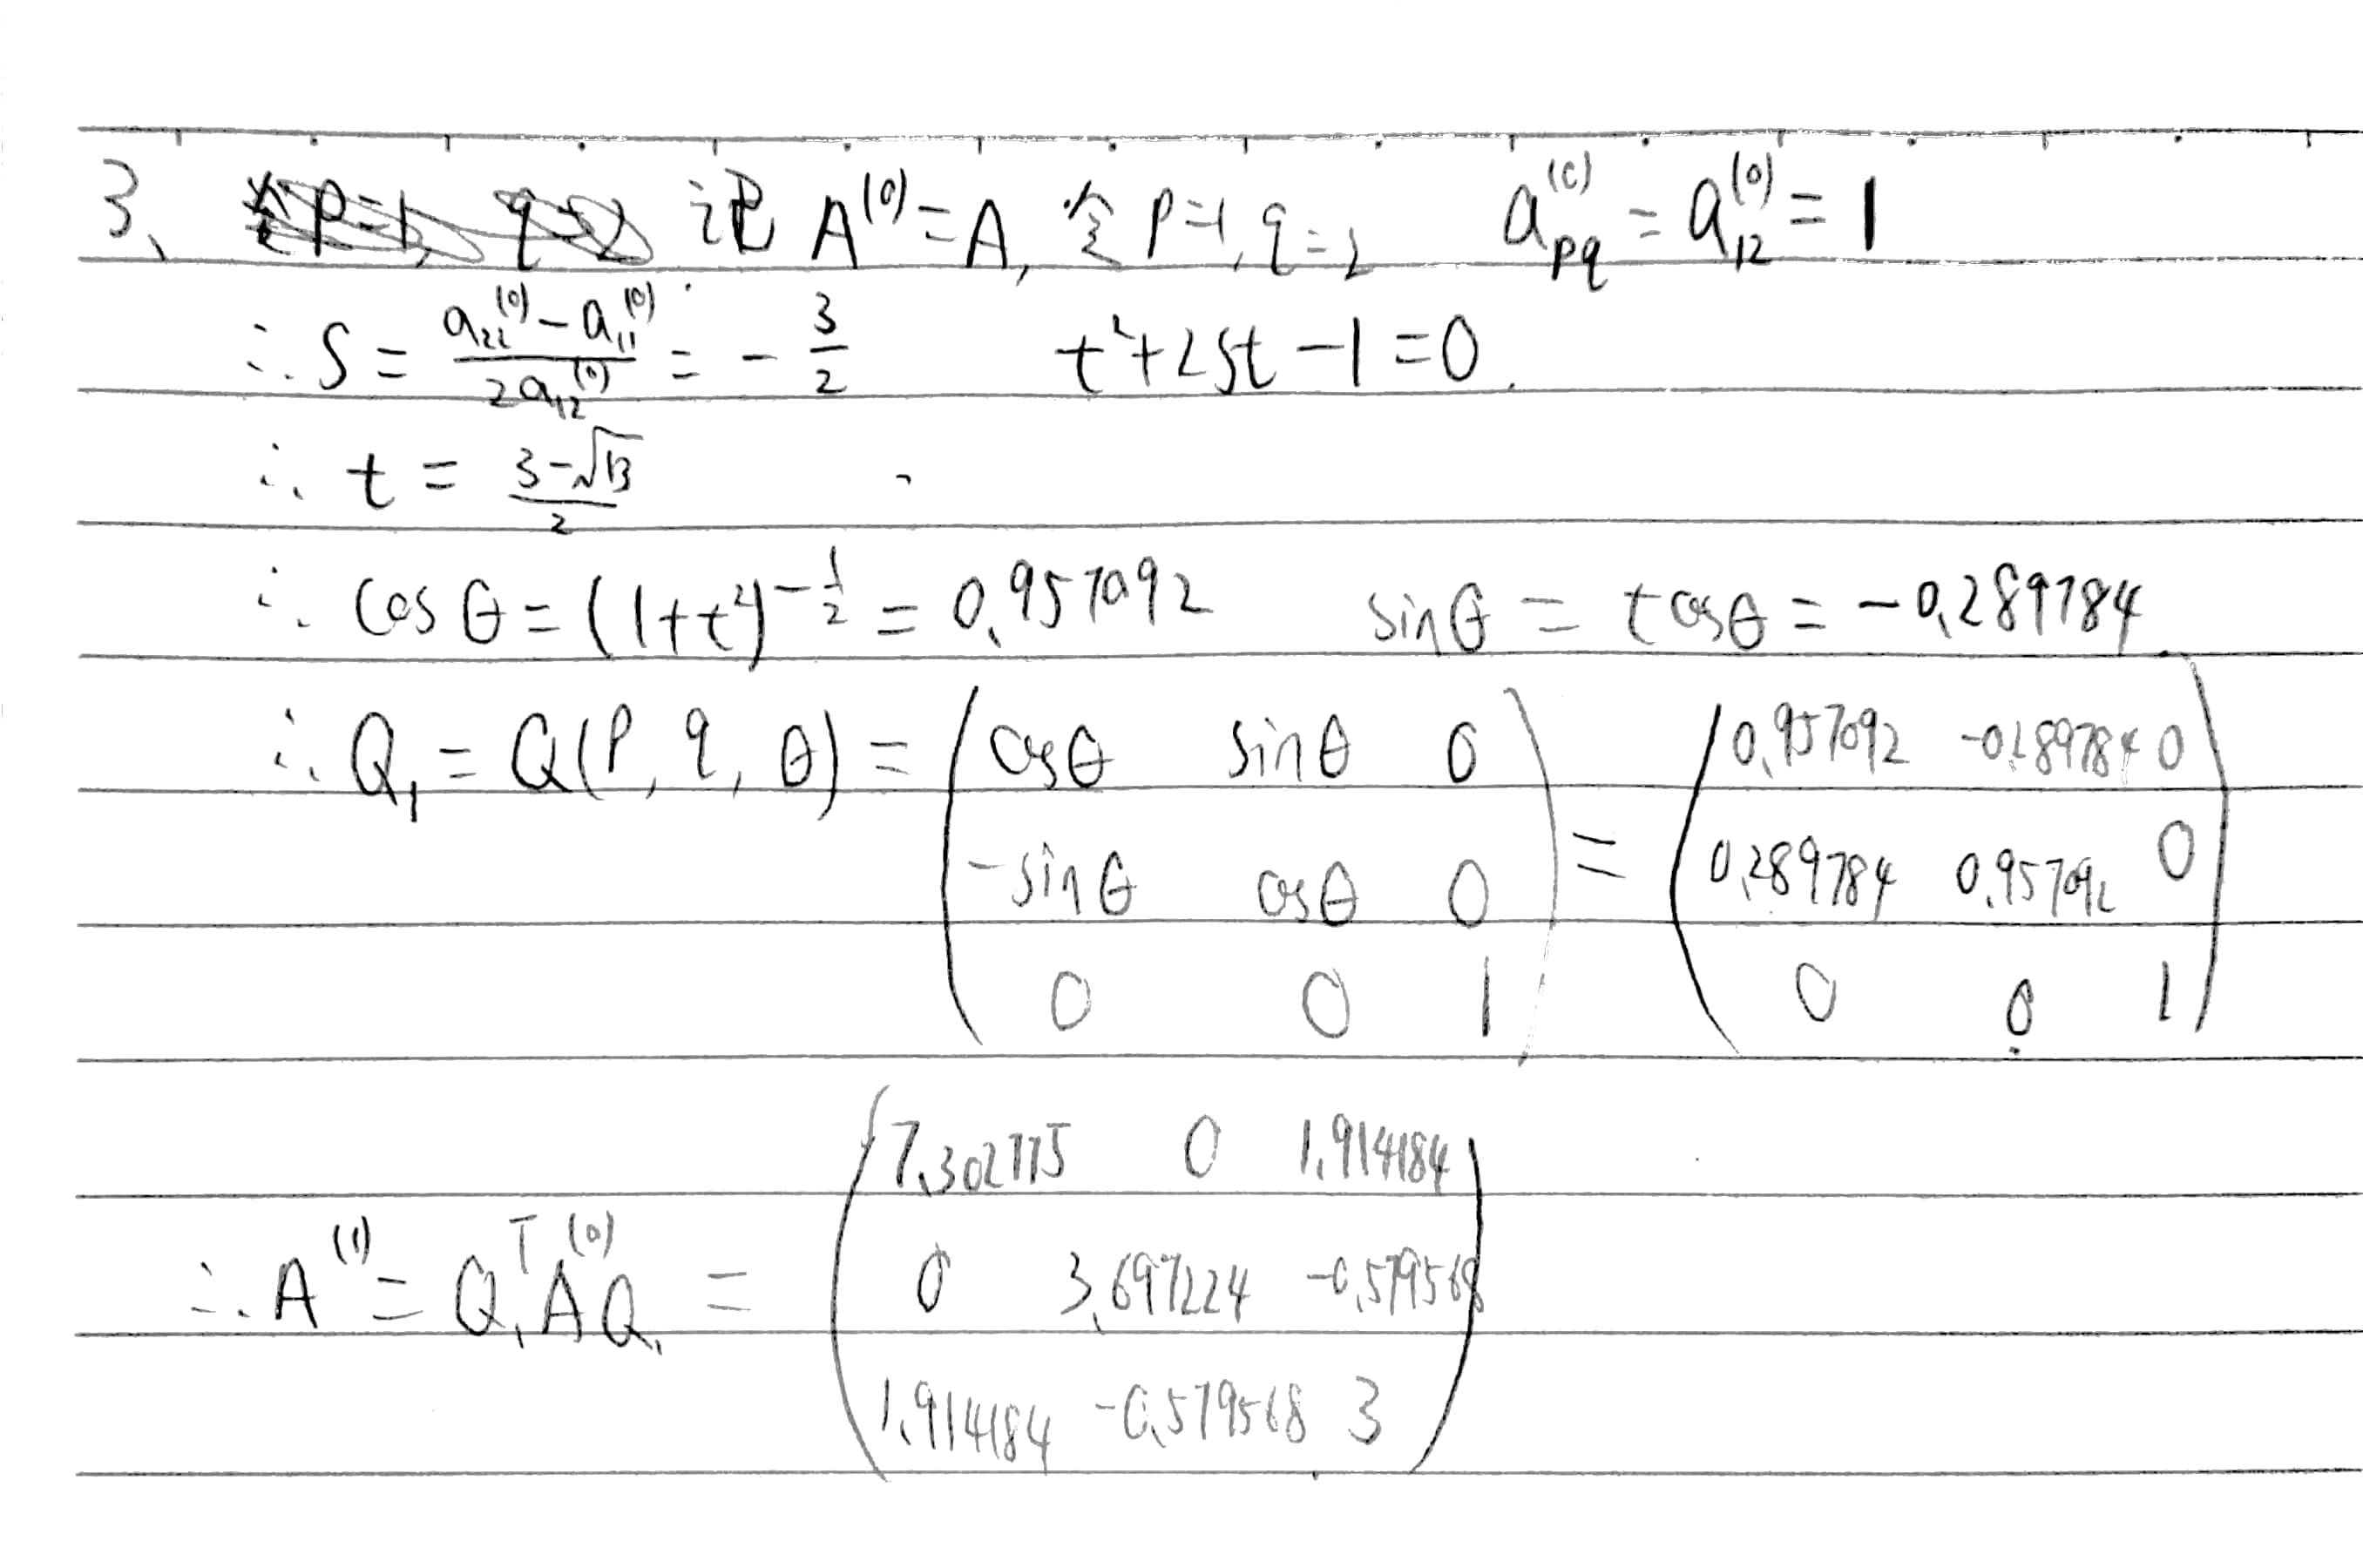 3、 记 A^(0) = A, 令 p=1, q=2 a_pq^(0) = a_12^(0) = 1
∴ S = (a_22^(0) - a_11^(0)) / (2a_12^(0)) = -3/2 t² + 2st - 1 = 0.
∴ t = (3-√13)/2
∴ cosθ = (1+t²)^(-1/2) = 0.957092 sinθ = tcosθ = -0.289784
∴ Q₁ = Q(p, q, θ) = ( cosθ sinθ 0 ; -sinθ cosθ 0 ; 0 0 1 ) = ( 0.957092 -0.289784 0 ; 0.289784 0.957092 0 ; 0 0 1 )
∴ A^(1) = Q₁^T A^(0) Q₁ = ( 7.302775 0 1.914184 ; 0 3.697224 -0.579568 ; 1.914184 -0.579568 3 )